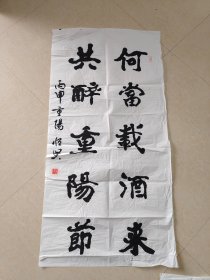 何當載酒来
共醉重陽節
丙申重陽